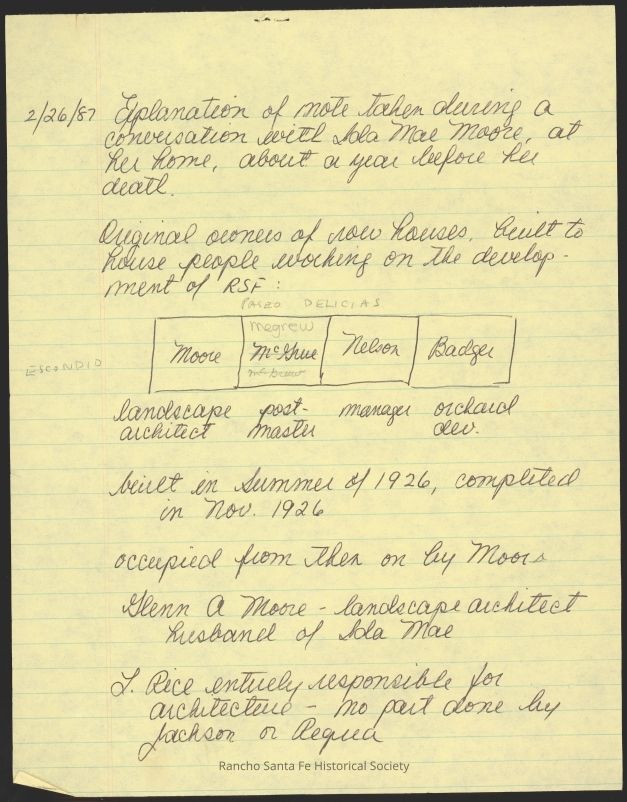 2/26/87 Explanation of note taken during a
conversation with Ida Mae Moore, at
her home, about a year before her
death.
Original owners of row houses, built to
house people working on the develop-
ment of RSF:
PASEO DELICIAS
ESCONDIO
Megrew
Moore McGrue Nelson Badger
McGrew
landscape post- manager orchard
architect master dev.
built in Summer of 1926, completed
in Nov. 1926
occupied from then on by Moores
Glenn A Moore - landscape architect
husband of Ida Mae
L. Rice entirely responsible for
architecture - no part done by
Jackson or Requa
Rancho Santa Fe Historical Society